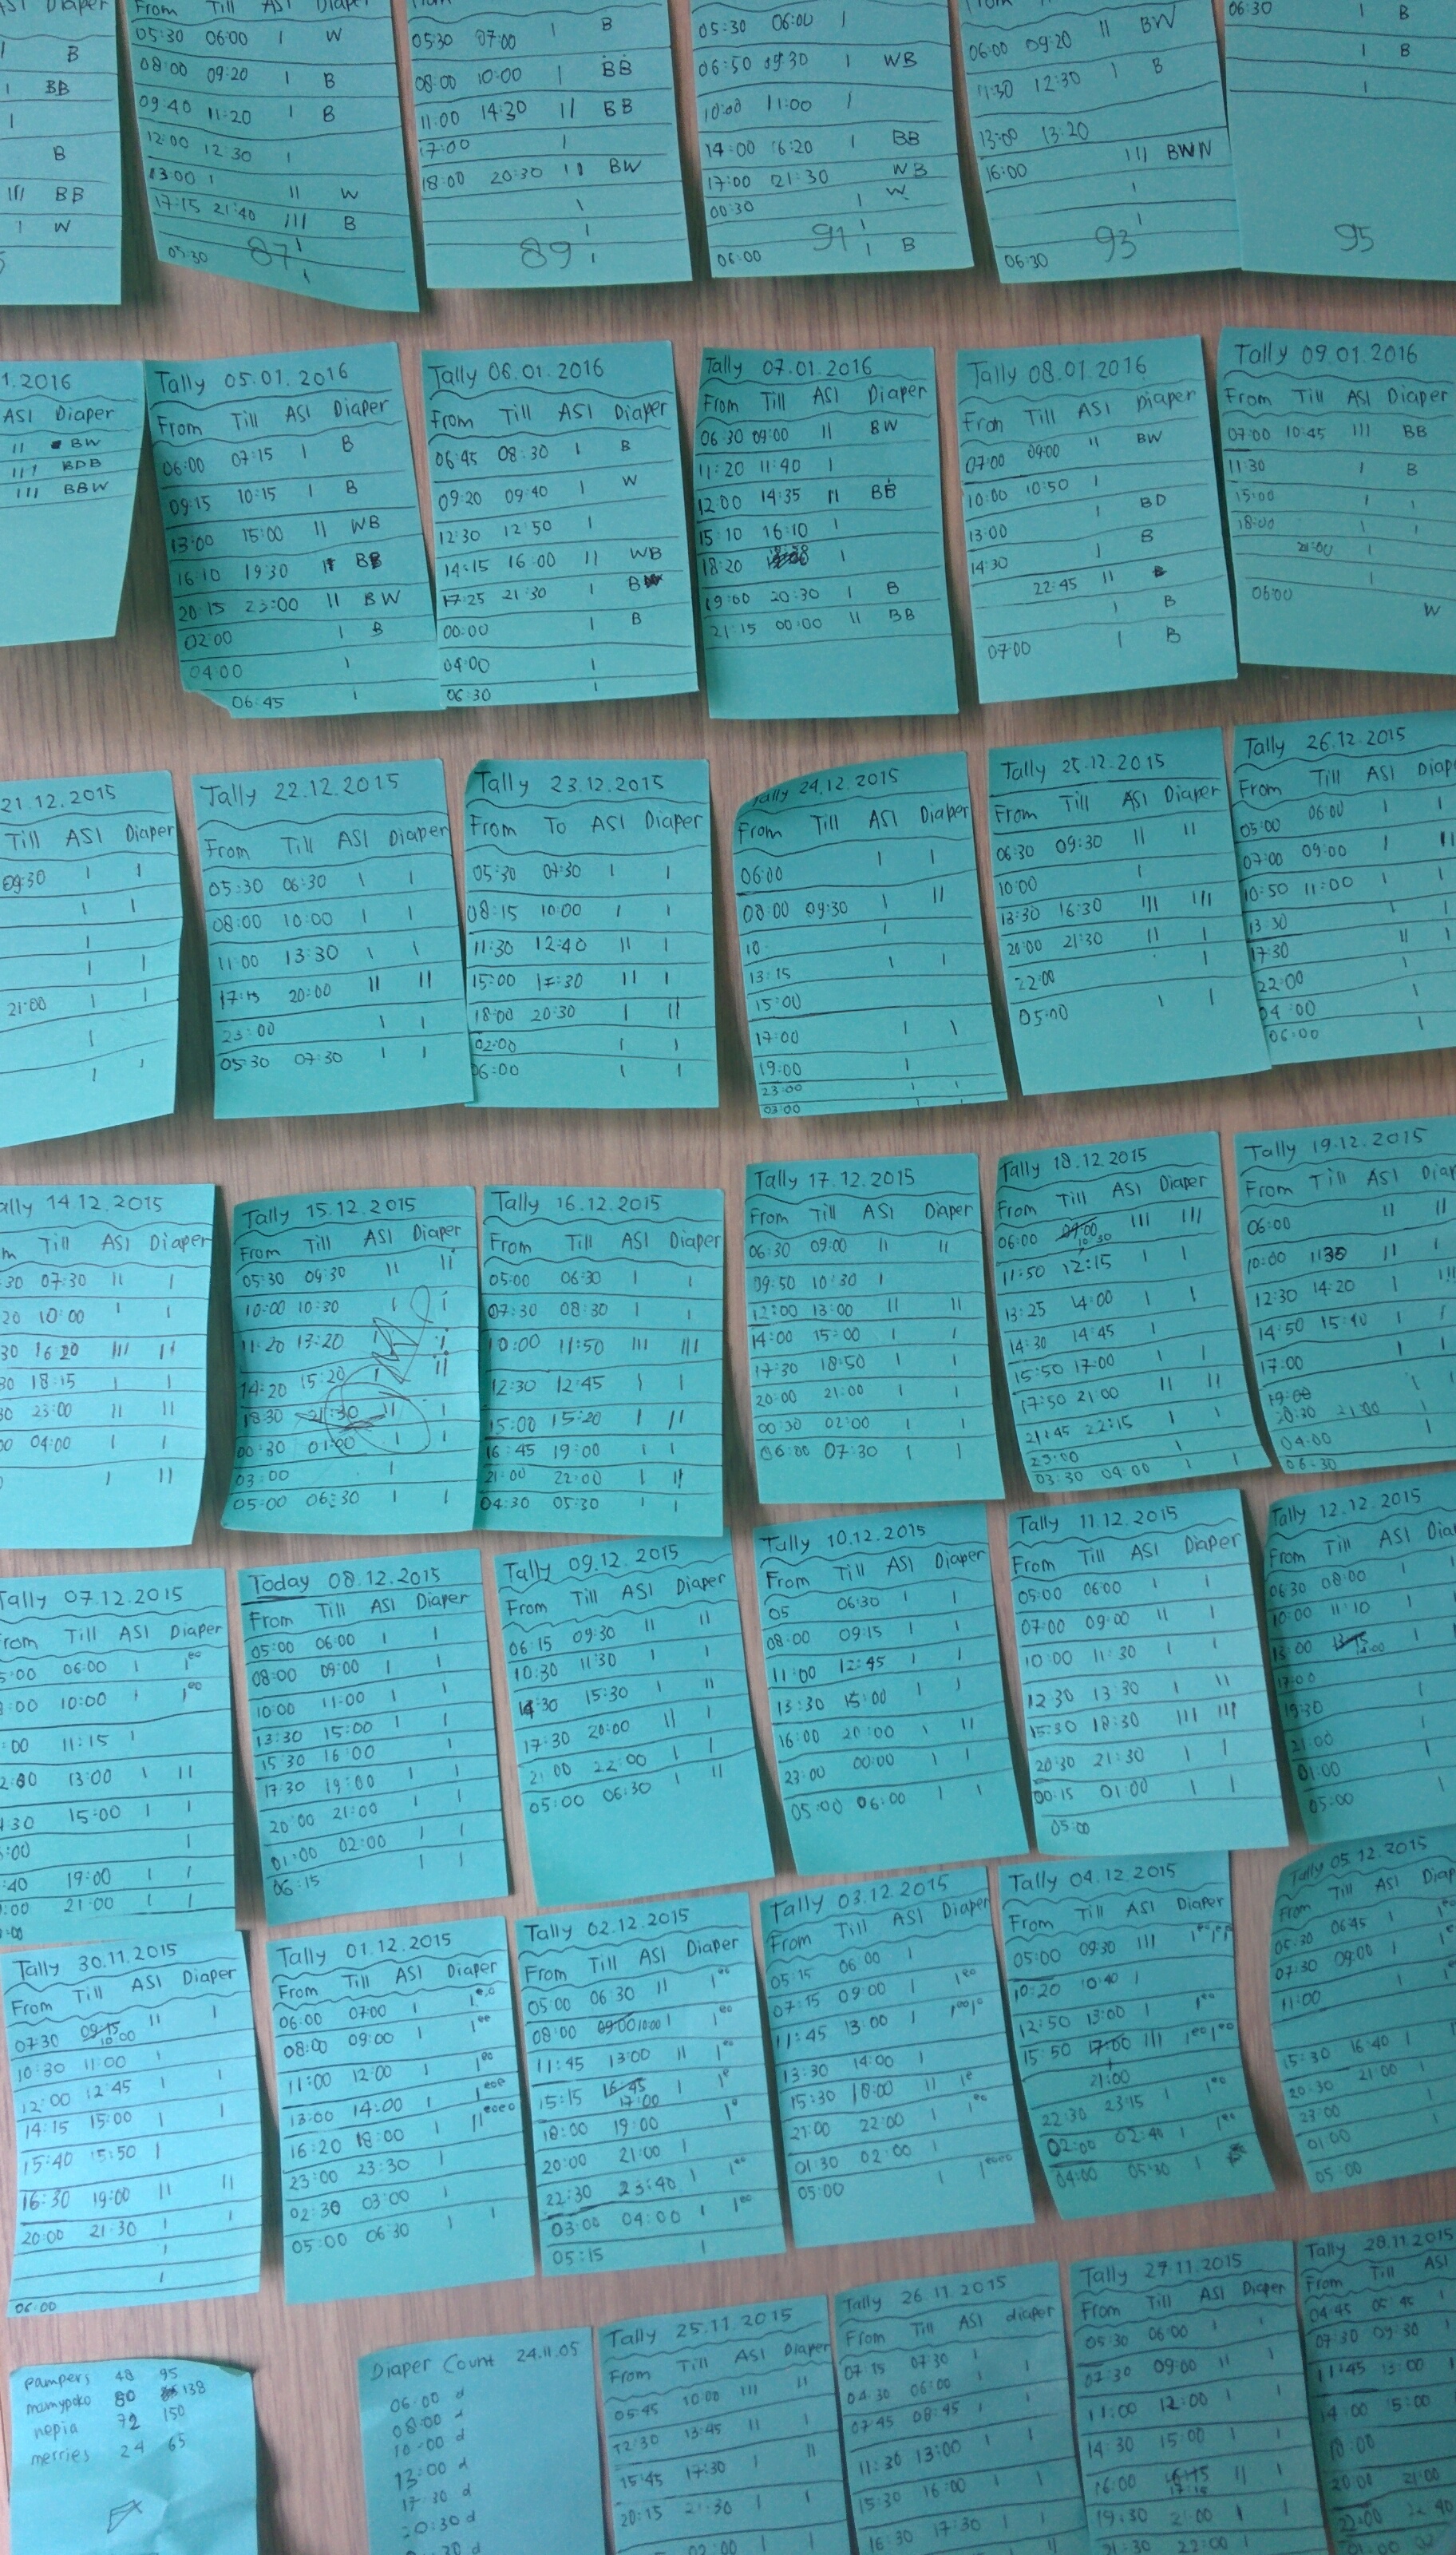 ASI Diaper
B
BB
B
III BB
I W
From Till ASI Diaper
05:30 06:00 I W
08:00 09:20 I B
09:40 11:20 I B
12:00 12:30 I
13:00 II W
17:15 21:40 III B
05:30
87
05:30 07:00 I B
08:00 10:00 I BB
11:00 14:30 II BB
17:00 I
18:00 20:30 II BW
89
05:30 06:00 I
06:50 09:30 I WB
10:00 11:00 I
14:00 16:20 I BB
17:00 21:30 WB
00:30 I W
06:00 I B
91
06:00 09:20 II BW
11:30 12:30 I B
13:00 13:20
16:00 III BWW
06:30
93
06:30 I B
I B
I
95
1.2016
ASI Diaper
II BW
III BDB
III BBW
Tally 05.01.2016
From Till ASI Diaper
06:00 07:15 I B
09:15 10:15 I B
13:00 15:00 II WB
16:10 19:30 II BB
20:15 23:00 II BW
02:00 I B
04:00 I
06:45 I
Tally 06.01.2016
From Till ASI Diaper
06:45 08:30 I B
09:20 09:40 I W
12:30 12:50 I
14:15 16:00 II WB
17:25 21:30 I B
00:00 I B
04:00 I
06:30 I
Tally 07.01.2016
From Till ASI Diaper
06:30 09:00 II BW
11:20 11:40 I
12:00 14:35 II BB
15:10 16:10 I
18:20 I
19:00 20:30 I B
21:15 00:00 II BB
Tally 08.01.2016
From Till ASI Diaper
07:00 09:00 II BW
10:00 10:50 I
13:00 I BD
14:30 I B
22:45 II B
I B
07:00 I B
Tally 09.01.2016
From Till ASI Diaper
07:00 10:45 III BB
11:30 I B
15:00 I I
18:00 I I
21:00 I
I
06:00
W
21.12.2015
Till ASI Diaper
09:30 I I
I I
I
I I
21:00 I I
I
I I
Tally 22.12.2015
From Till ASI Diaper
05:30 06:30 I I
08:00 10:00 I I
11:00 13:30 I I
17:15 20:00 II II
23:00 I I
05:30 07:30 I I
Tally 23.12.2015
From To ASI Diaper
05:30 07:30 I I
08:15 10:00 I I
11:30 12:40 II I
15:00 17:30 II I
18:00 20:30 I II
02:00 I I
06:00 I I
Tally 24.12.2015
From Till ASI Diaper
06:00 I I
08:00 09:30 I II
10: I
13:15 I I
15:00
17:00 I I
19:00 I
23:00 I I
03:00 I I
Tally 25.12.2015
From Till ASI Diaper
06:30 09:30 II II
10:00 I
13:30 16:30 III III
20:00 21:30 II I
22:00 I
05:00 I I
Tally 26.12.2015
From Till ASI Diap
05:00 06:00 I I
07:00 09:00 I II
10:50 11:00 I I
13:30 I
17:30 II
22:00 I
04:00 I
06:00 I
ally 14.12.2015
m Till ASI Diaper
30 07:30 II I
20 10:00 I I
30 16:20 III II
30 18:15 I I
30 23:00 II II
00 04:00 I I
I II
Tally 15.12.2015
From Till ASI Diaper
05:30 09:30 II II
10:00 10:30 I I
11:20 13:20
14:20 15:20
18:30 21:30 II I
00:30 01:00 I I
03:00 I
05:00 06:30 I I
Tally 16.12.2015
From Till ASI Diaper
05:00 06:30 I I
07:30 08:30 I I
10:00 11:50 III III
12:30 12:45 I I
15:00 15:20 I II
16:45 19:00 I I
21:00 22:00 I II
04:30 05:30 I I
Tally 17.12.2015
From Till ASI Diaper
06:30 09:00 II II
09:50 10:30 I
12:00 13:00 II II
14:00 15:00 I I
17:30 18:50 I I
20:00 21:00 I I
00:30 02:00 I I
06:00 07:30 I I
Tally 18.12.2015
From Till ASI Diaper
06:00 09:00 10:30 III III
11:50 12:15 I I
13:25 14:00 I I
14:30 14:45 I
15:50 17:00 I I
17:50 21:00 II II
21:45 22:15 I I
23:00 I
03:30 04:00 I I
Tally 19.12.2015
From Till ASI Diap
06:00 II II
10:00 1130 II I
12:30 14:20 I III
14:50 15:40 I I
17:00 I I
19:00
20:30 21:00
04:00
06:30
Tally 07.12.2015
From Till ASI Diaper
5:00 06:00 I I
:00 10:00 I I
:00 11:15 I
2:00 13:00 I II
:30 15:00 I I
:00 I
:40 19:00 I I
:00 21:00 I I
:00
Today 08.12.2015
From Till ASI Diaper
05:00 06:00 I I
08:00 09:00 I I
10:00 11:00 I I
13:30 15:00 I I
15:30 16:00 I
17:30 19:00 I I
20:00 21:00 I I
01:00 02:00 I I
06:15 I I
Tally 09.12.2015
From Till ASI Diaper
06:15 09:30 II II
10:30 11:30 I I
14:30 15:30 I II
17:30 20:00 II I
21:00 22:00 I I
05:00 06:30 I II
Tally 10.12.2015
From Till ASI Diaper
05 06:30 I I
08:00 09:15 I I
11:00 12:45 I I
13:30 15:00 I I
16:00 20:00 I II
23:00 00:00 I I
05:00 06:00 I I
Tally 11.12.2015
From Till ASI Diaper
05:00 06:00 I I
07:00 09:00 II I
10:00 11:30 I I
12:30 13:30 I II
15:30 18:30 III III
20:30 21:30 I I
00:15 01:00 I I
05:00
Tally 12.12.2015
From Till ASI Diap
06:30 08:00 I
10:00 11:10 I
13:00 13:15 14:00 I
17:00
19:30
21:00
01:00
05:00
Tally 30.11.2015
From Till ASI Diaper
07:30 09:15 10:00 II I
10:30 11:00 I
12:00 12:45 I I
14:15 15:00 I I
15:40 15:50 I
16:30 19:00 II II
20:00 21:30 I I
I
I
06:00
Tally 01.12.2015
From Till ASI Diaper
06:00 07:00 I I
08:00 09:00 I I
11:00 12:00 I I
13:00 14:00 I I
16:20 18:00 I II
23:00 23:30 I
02:30 03:00 I
05:00 06:30 I I
Tally 02.12.2015
From Till ASI Diaper
05:00 06:30 II I
08:00 09:00 10:00 I I
11:45 13:00 II I
15:15 16:45 17:00 I I
18:00 19:00 I
20:00 21:00 I
22:30 23:40 I I
03:00 04:00 I I
05:15 I
Tally 03.12.2015
From Till ASI Diaper
05:15 06:00 I
07:15 09:00 I I
11:45 13:00 I
13:30 14:00 I
15:30 18:00 II I
21:00 22:00 I I
01:30 02:00 I
05:00 I I
Tally 04.12.2015
From Till ASI Diaper
05:00 09:30 III
10:20 10:40 I
12:50 13:00 I I
15:50 17:00 III
21:00
22:30 23:15 I I
02:00 02:40 I I
04:00 05:30 I
Tally 05.12.2015
From Till ASI Diap
05:30 06:45 I
07:30 09:00 I
11:00
15:30 16:40 I
20:30 21:00 I
23:00
01:00
05:00
pampers 48 95
mamypoko 80 138
nepia 72 150
merries 24 65
Diaper Count 24.11.05
06:00 d
08:00 d
10:00 d
13:00 d
17:30 d
20:30 d
Tally 25.11.2015
From Till ASI Diaper
05:45 10:00 III II
12:30 13:45 II I
15:45 17:30 I II
20:15 21:30 I I
02:00 I I
Tally 26.11.2015
From Till ASI diaper
07:15 07:30 I
04:30 06:00 I I
07:45 08:45 I I
11:30 13:00 I I
15:30 16:00 I I
16:30 17:30 I I
Tally 27.11.2015
From Till ASI Diaper
05:30 06:00 I I
07:30 09:00 II I
11:00 12:00 I I
14:30 15:00 I I
16:00 16:45 17:15 II I
19:30 21:00 I I
21:30 22:00 I
Tally 28.11.2015
From Till ASI
04:45 05:45 I
07:30 09:30 I
11:45 13:00 I
14:00 15:00
18:00
20:00 21:00
22:00 22:40